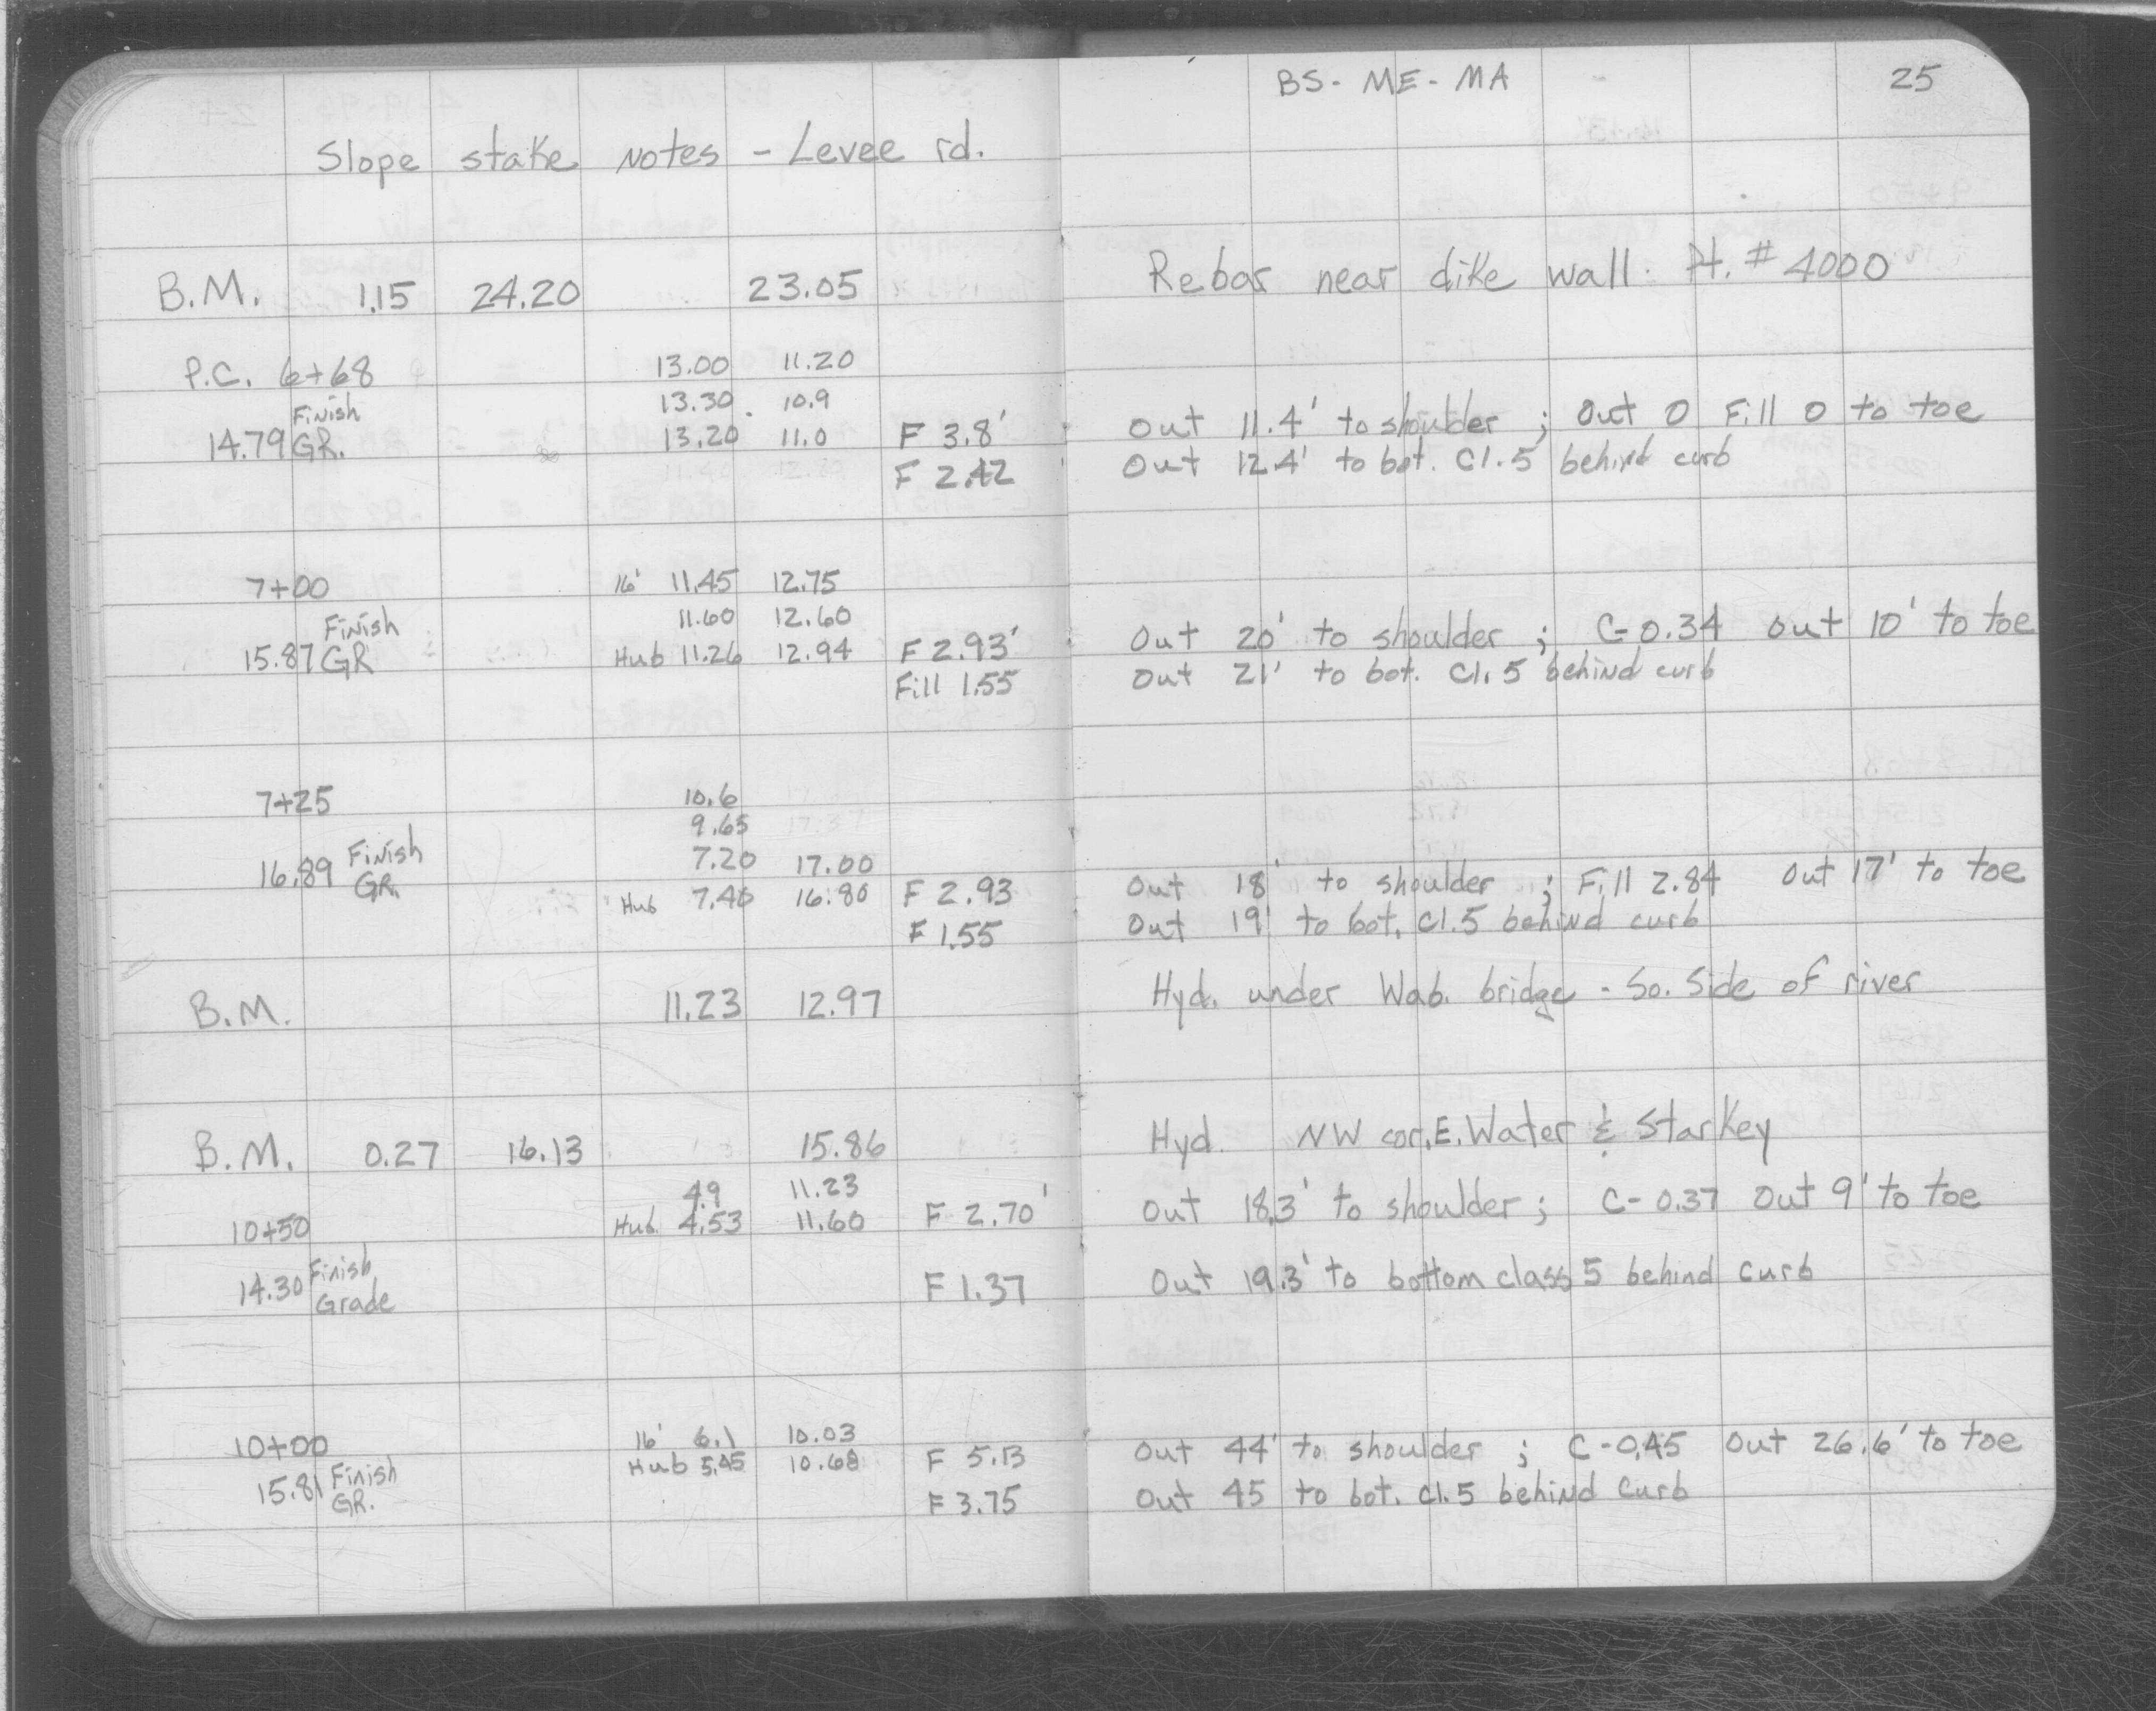 BS- ME- MA 25
Slope stake Notes - Levee rd.
B.M. 1.15 24.20 23.05 Rebar near dike wall. Pt. # 4000
P.C. 6+68 13.00 11.20
13.30 10.9
14.79 Finish GR. 13.20 11.0 F 3.8' Out 11.4' to shoulder ; Out 0 Fill 0 to toe
F 2.42 Out 12.4' to bot. Cl. 5 behind curb
7+00 16' 11.45 12.75
11.60 12.60
15.87 Finish GR Hub 11.26 12.94 F 2.93' Out 20' to shoulder ; C-0.34 out 10' to toe
Fill 1.55 Out 21' to bot. Cl. 5 behind curb
7+25 10.6
9.65
16.89 Finish GR. 7.20 17.00
Hub 7.40 16.80 F 2.93 Out 18' to shoulder ; Fill 2.84 Out 17' to toe
F 1.55 Out 19' to bot. Cl. 5 behind curb
B.M. 11.23 12.97 Hyd. under Wab. bridge - So. Side of river
B.M. 0.27 16.13 15.86 Hyd. NW cor. E. Water & Starkey
4.9 11.23
10+50 Hub 4.53 11.60 F 2.70' Out 18.3' to shoulder ; C- 0.37 Out 9' to toe
14.30 Finish Grade F 1.37 Out 19.3' to bottom class 5 behind curb
10+00 16' 6.1 10.03
15.81 Finish GR. Hub 5.45 10.68 F 5.13 Out 44' to shoulder ; C-0.45 Out 26.6' to toe
F 3.75 Out 45 to bot. Cl. 5 behind Curb